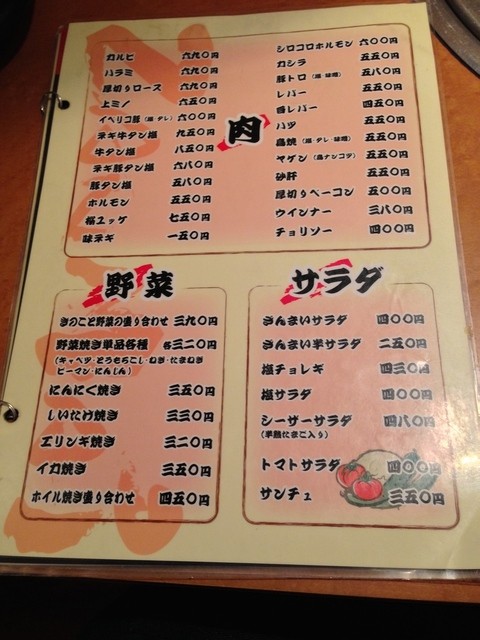 肉
カルビ 六九〇円
ハラミ 六九〇円
厚切りロース 六九〇円
上ミノ 六五〇円
イベリコ豚(塩・タレ) 六〇〇円
ネギ牛タン塩 九五〇円
牛タン塩 八五〇円
ネギ豚タン塩 六八〇円
豚タン塩 五八〇円
ホルモン 五五〇円
桜ユッケ 七五〇円
味ネギ 一五〇円
シロコロホルモン 六〇〇円
カシラ 五五〇円
豚トロ(塩・味噌) 五八〇円
レバー 五五〇円
レバー 四五〇円
ハツ 五五〇円
鳥焼(塩・タレ・味噌) 五五〇円
ヤゲン(鳥ナンコツ) 五五〇円
砂肝 五五〇円
厚切りベーコン 五〇〇円
ウインナー 三八〇円
チョリソー 四〇〇円
野菜
きのこと野菜の盛り合わせ 三九〇円
野菜焼き単品各種 各三二〇円
(キャベツ・とうもろこし・ねぎ・たまねぎ
ピーマン・にんじん)
にんにく焼き 三五〇円
しいたけ焼き 三三〇円
エリンギ焼き 三二〇円
イカ焼き 三五〇円
ホイル焼き盛り合わせ 四五〇円
サラダ
さんまいサラダ 四〇〇円
さんまい半サラダ 二五〇円
塩チョレギ 四三〇円
塩サラダ 四〇〇円
シーザーサラダ 四八〇円
(半熟たまご入り)
トマトサラダ 四〇〇円
サンチュ 三五〇円